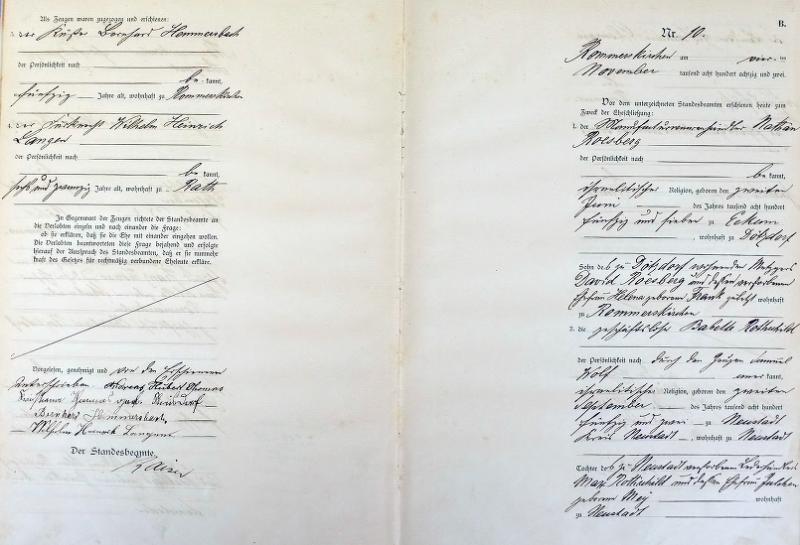 Als Zeugen waren zugezogen und erschienen:
1. der Küster Bernhard Hemmersbach
der Persönlichkeit nach
be kannt,
fünfzig Jahre alt, wohnhaft zu Rommerskirchen
2. der Wilhelm Heinrich
Langen
der Persönlichkeit nach
be kannt,
sechs und zwanzig Jahre alt, wohnhaft zu Rath
In Gegenwart der Zeugen richtete der Standesbeamte an
die Verlobten einzeln und nach einander die Frage:
ob sie erklären, daß sie die Ehe mit einander eingehen wollen.
Die Verlobten beantworteten diese Frage bejahend und erfolgte
hierauf der Ausspruch des Standesbeamten, daß er sie nunmehr
kraft des Gesetzes für rechtmäßig verbundene Eheleute erkläre.
Vorgelesen, genehmigt und von den Erschienenen
unterschrieben Andreas Hubert Thomas
Bernhard Hemmersbach
Wilhelm Heinrich Langen
Der Standesbeamte.
Kaiser
B.
Nr. 10.
Rommerskirchen am vier ten
November tausend acht hundert achtzig und zwei.
Vor dem unterzeichneten Standesbeamten erschienen heute zum
Zweck der Eheschließung:
1. der Manufacturwarenhändler Nathan
Roesberg
der Persönlichkeit nach
be kannt,
israelitischer Religion, geboren den zweiten
Juni des Jahres tausend acht hundert
fünfzig und sieben zu Eckum
, wohnhaft zu Dötzdorf
Sohn des zu Dötzdorf wohnenden Metzgers
David Roesberg und dessen verstorbenen
Ehefrau Helena geborenen Frank zuletzt wohnhaft
zu Rommerskirchen
2. die geschäftslose Babette Rothschild
der Persönlichkeit nach durch den Zeugen Samuel
Wolf anerkannt,
israelitischer Religion, geboren den zweiten
September des Jahres tausend acht hundert
fünfzig und zwei zu Neustadt
Kreis Neustadt, wohnhaft zu Neustadt
Tochter des zu Neustadt verstorbenen Lederhändlers
May Rothschild und dessen Ehefrau
geborenen Mey wohnhaft
zu Neustadt